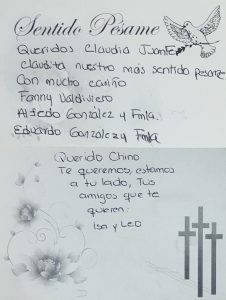 Sentido Pésame
Queridos Claudia Juante
claudita nuestro más sentido pesame
Con mucho cariño
Fanny Valdiviero
Alfredo Gonzalez y Fmla.
Eduardo Gonzalez y Fmla
Querido Chino
Te queremos, estamos
a tu lado, Tus
amigos que te
quieren:
Isa y Leo